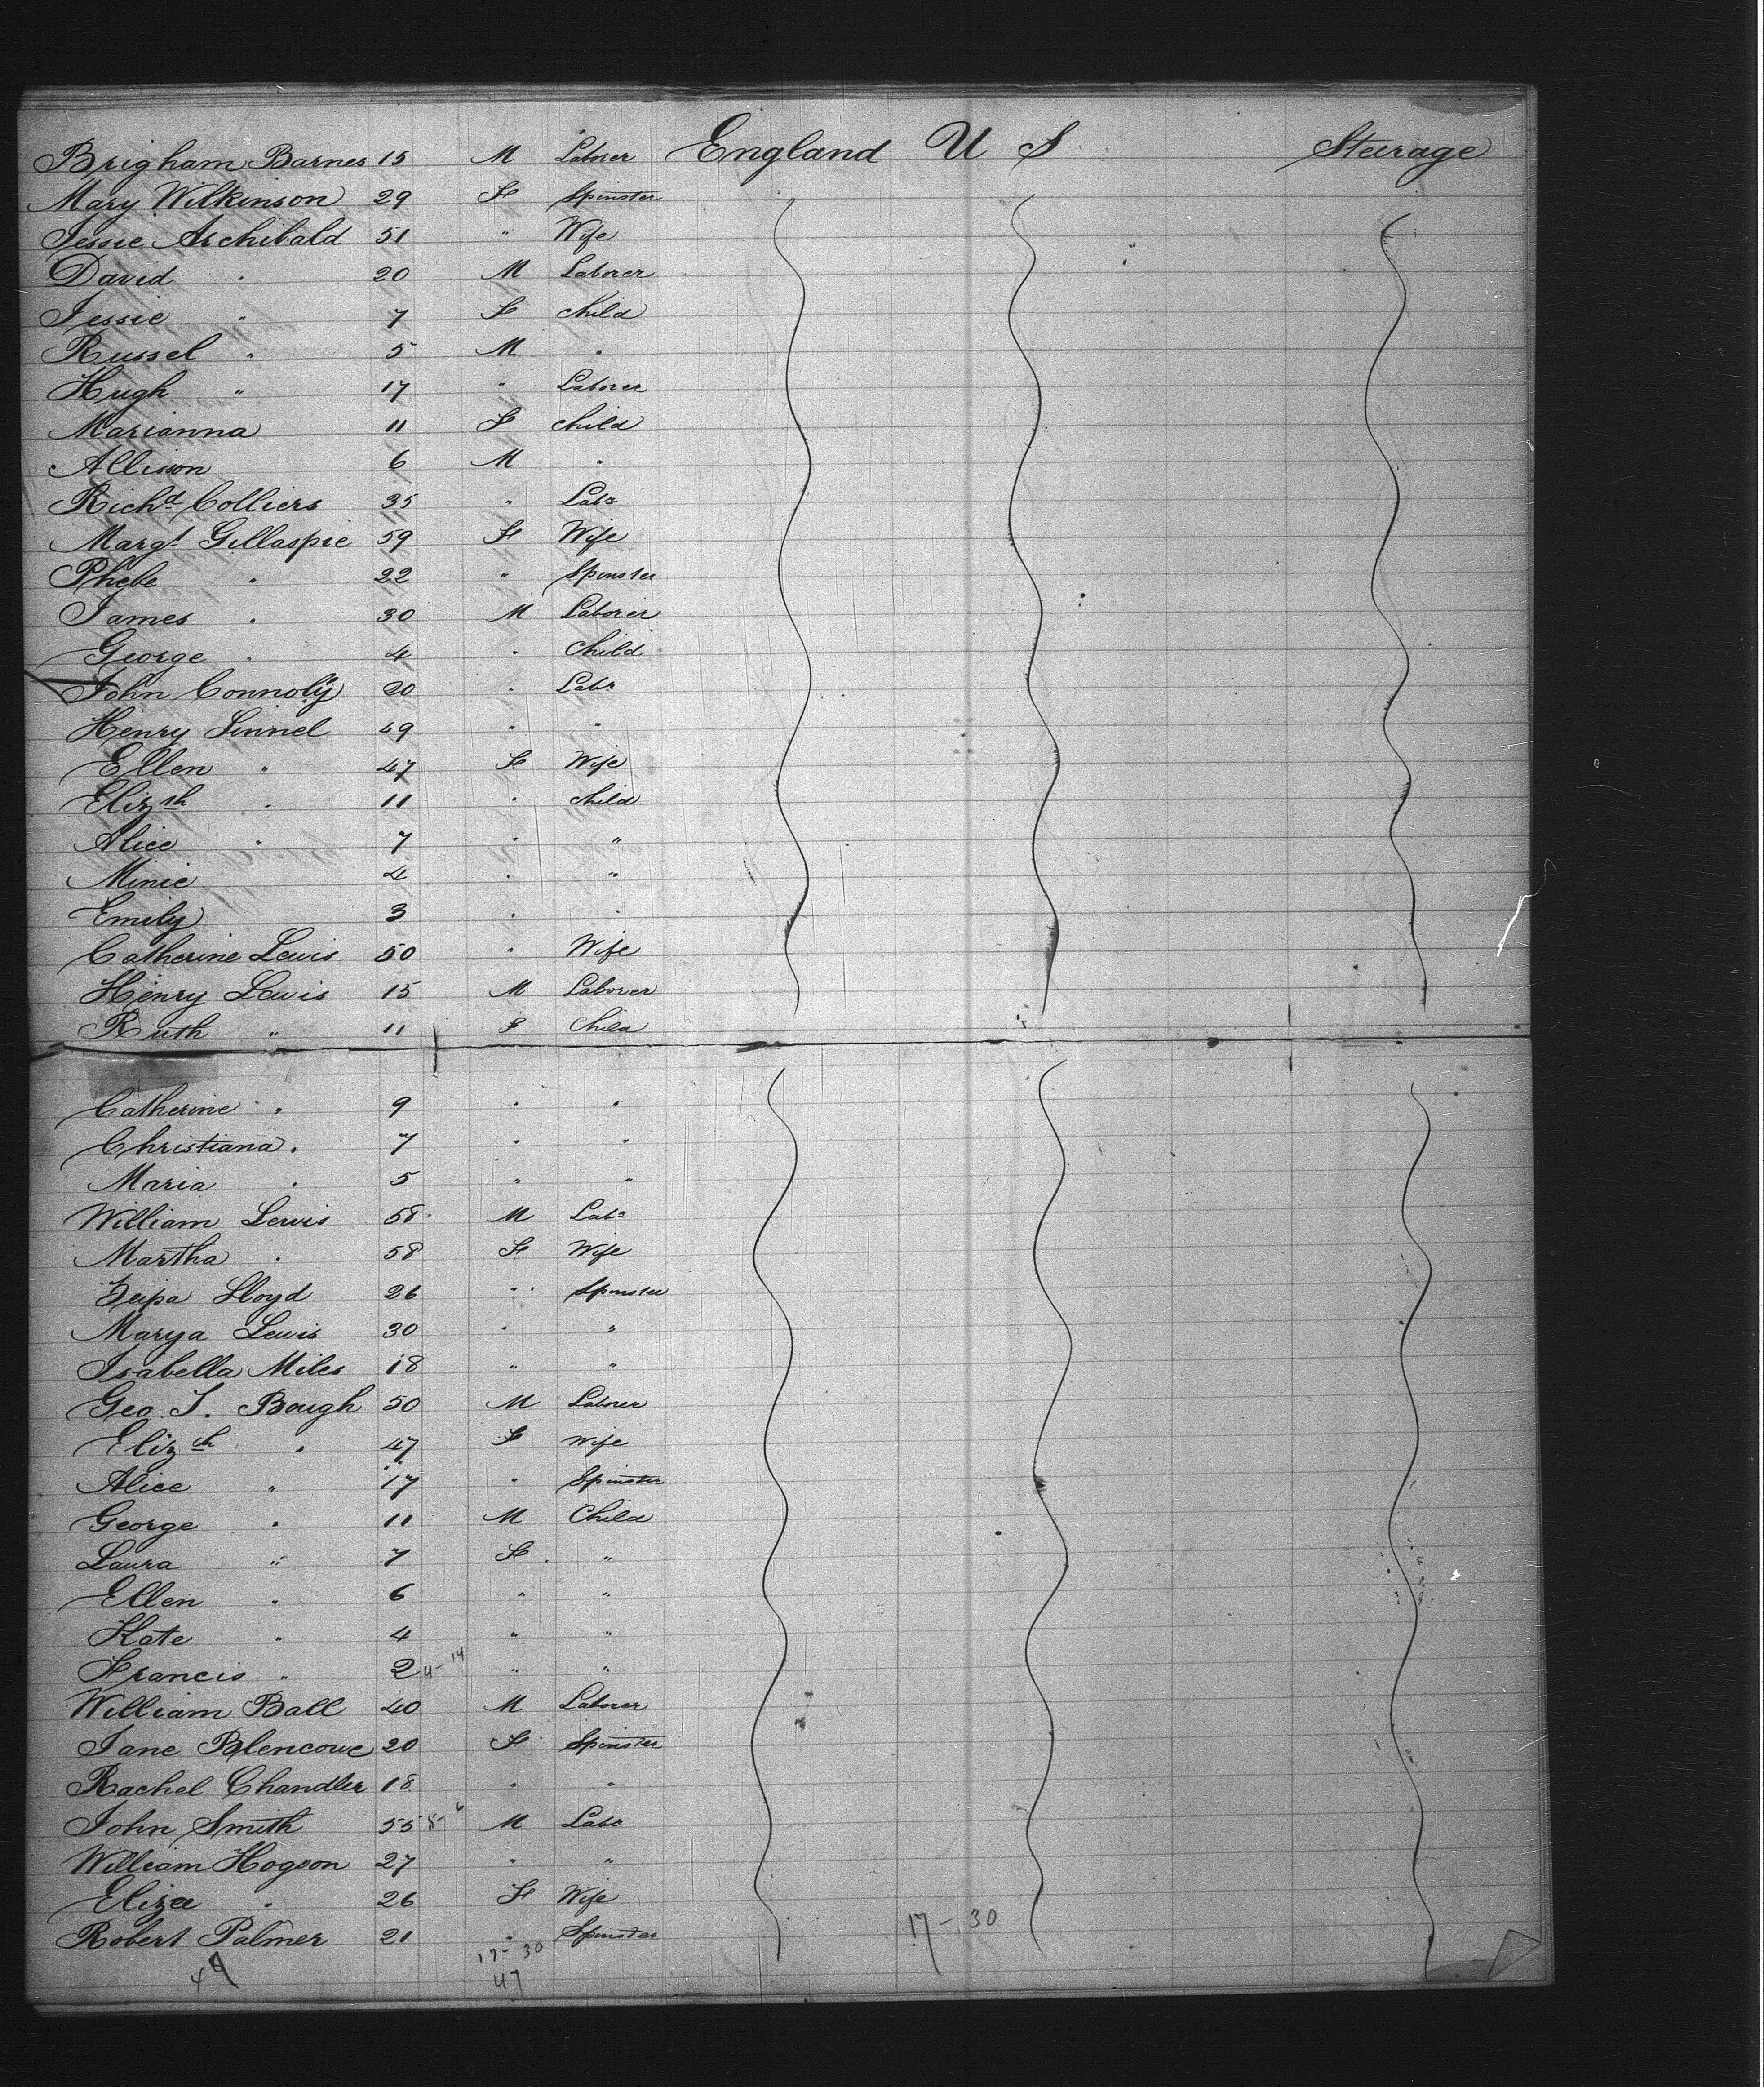 Brigham Barnes 15 M Laborer England U S Steerage
Mary Wilkinson 29 F Spinster
Jessie Archibald 51 " Wife
David " 20 M Laborer
Jessie " 7 F Child
Russel " 5 M "
Hugh " 17 " Laborer
Marianna 11 F Child
Allison 6 M "
Richd Colliers 35 " Labr
Margt Gillaspie 59 F Wife
Phebe " 22 " Spinster
James " 30 M Laborer
George " 4 " Child
John Connoly 20 " Labr
Henry Linnel 49 " "
Ellen " 47 F Wife
Elizth " 11 " Child
Alice " 7 " "
Minie 4 " "
Emily 3 " "
Catherine Lewis 50 " Wife
Henry Lewis 15 M Laborer
Ruth " 11 F Child
Catherine " 9 " "
Christiana " 7 " "
Maria " 5 " "
William Lewis 58 M Labr
Martha " 58 F Wife
Lloyd 26 " Spinster
Marya Lewis 30 " "
Isabella Miles 18 " "
Geo. J. Bough 50 M Laborer
Elizth " 47 F Wife
Alice " 17 " Spinster
George " 11 M Child
Laura " 7 F "
Ellen " 6 " "
Kate " 4 " "
Francis " 2 4-14 " "
William Ball 40 M Laborer
Jane Blencowe 20 F Spinster
Rachel Chandler 18 " "
John Smith 55 8-6 M Labr
William Hogson 27 " "
Eliza " 26 F Wife
Robert Palmer 21 " Spinster
17-30 17-30
47 47